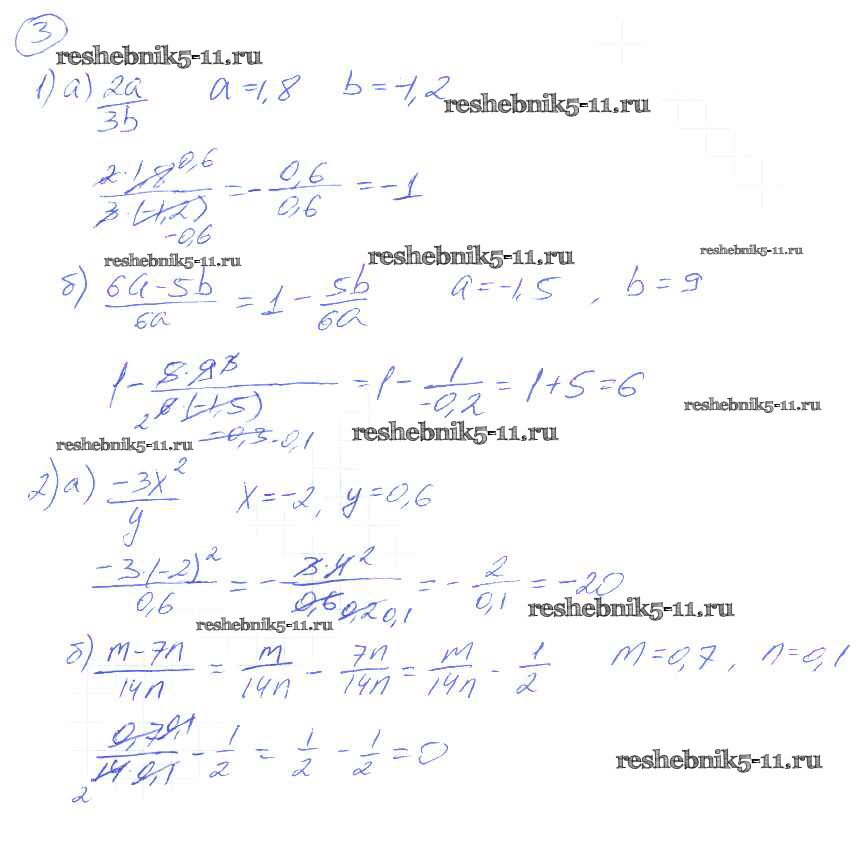 3
reshebnik5-11.ru
1) а) 2a/3b a=1,8 b=-1,2 reshebnik5-11.ru
2·1,8 0,6 / 3·(-1,2) -0,6 = -0,6/0,6 = -1
reshebnik5-11.ru reshebnik5-11.ru reshebnik5-11.ru
б) (6a-5b)/6a = 1 - 5b/6a a=-1,5 , b=9
1 - 5·9 3 / 2 6·(-1,5) = 1 - 1/-0,2 = 1+5=6
-0,3 -0,1
reshebnik5-11.ru
reshebnik5-11.ru reshebnik5-11.ru
2) а) -3x²/y x=-2, y=0,6
-3·(-2)²/0,6 = - 3·4 2 / 0,6 0,2 0,1 = - 2/0,1 = -20
reshebnik5-11.ru
reshebnik5-11.ru
б) (m-7n)/14n = m/14n - 7n/14n = m/14n - 1/2 m=0,7 , n=0,1
0,7 0,1 / 2 14·0,1 - 1/2 = 1/2 - 1/2 = 0
reshebnik5-11.ru